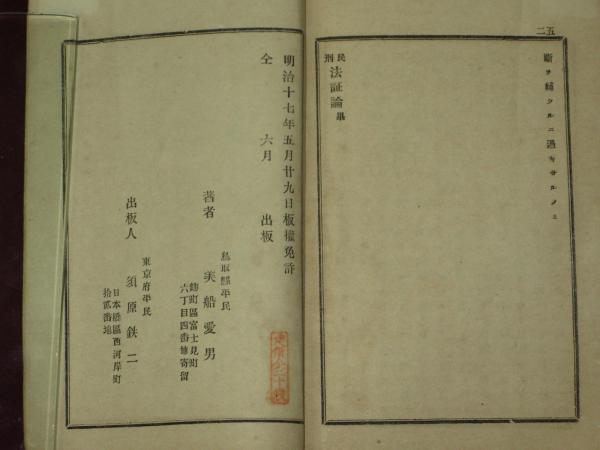 二五
斷ヲ補フルニ過キサルノミ
民刑法証論畢
明治十七年五月廿九日板權免許
仝 六月 出板
鳥取縣平民
著者 美船愛男
麹町區富士見町
六丁目四番地寄留
東京府平民
出板人 須原鉄二
日本橋區西河岸町
拾貳番地